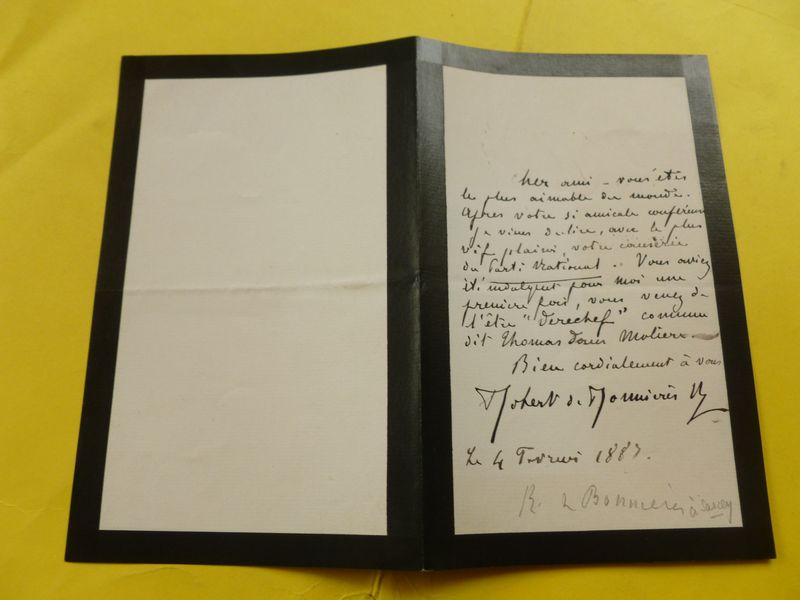 Cher ami – vous êtes
le plus aimable du monde.
Après votre si amicale conférence
je viens de lire, avec le plus
vif plaisir, votre causerie
du Parti National. Vous aviez
été indulgent pour moi une
première fois, vous venez de
l'être "derechef" comme
dit Thomas dans Molière.
Bien cordialement à vous
Robert de Bonnières
Le 4 Février 1887.
R. de Bonnières à Sarcey